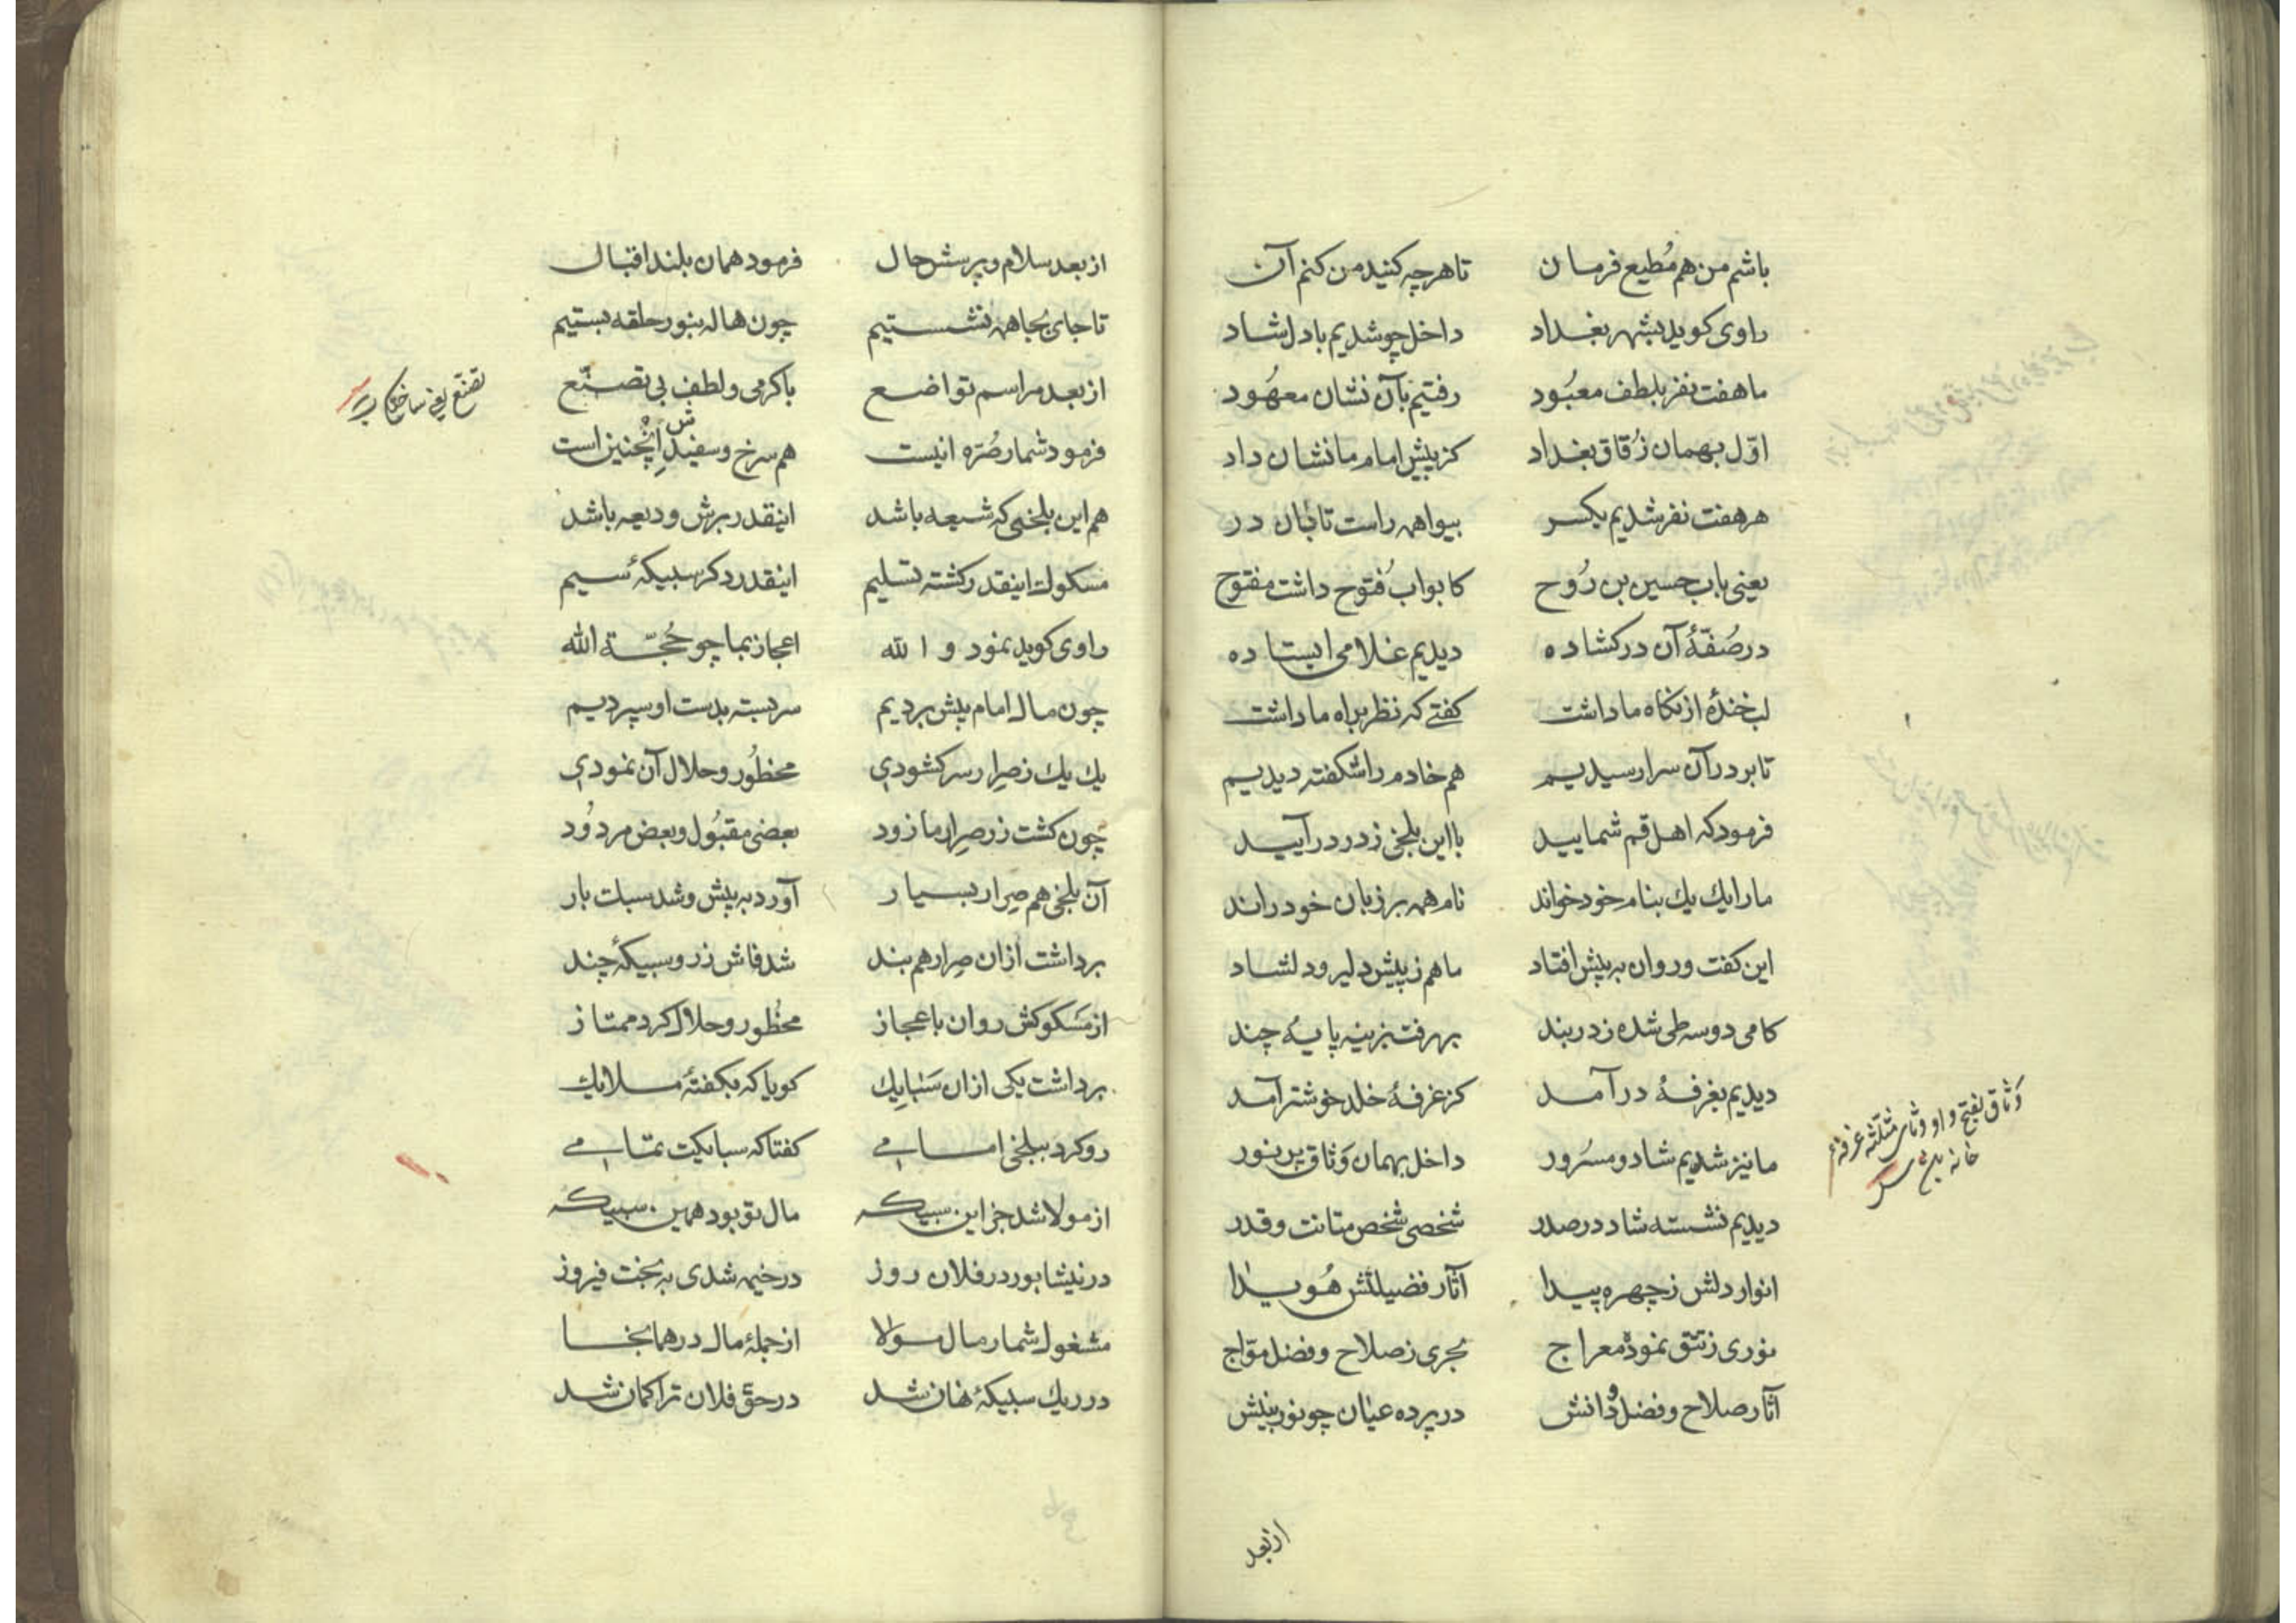 باشم من هم مُطیع فرمان تا هرچه کنید من کنم آن
راوی کوید بشهر بغداد داخل چو شدیم با دل شاد
ما هفت نفر بلطف معبُود رفتیم بآن نشان معهُود
اوّل بهمان زُقاق بغداد کز پیش امام ما نشان داد
هر هفت نفر شدیم یکسر بیواهمه راست تا بآن در
یعنی باب حسین بن رُوح کابواب فُتوح داشت مفتوح
در صُفّهٔ آن در کشاده دیدیم غلامی ایستاده
لب خندهٔ از نکاه ما داشت کفتے که نظر براه ما داشت
تا بر در آن سرا رسیدیم هم خادم را شکفته دیدیم
فرمود که اهل قم شمایید با این بلخی ز در درآیید
ما را یك یك بنام خود خواند نام همه بر زبان خود راند
این کفت و روان به پیش افتاد ما هم ز پیش دلیر و دلشاد
کامی دو سه طی شده ز دربند بهر فتبزینه پایهٔ چند
دیدیم بغرفهٔ درآمد کز غرفهٔ خلد خوشتر آمد
ما نیز شدیم شاد و مسرُور داخل بهمان وَثاق پر نور
وَثاق بفتح واو وثای مثلثه غرفه
دیدیم نشسته شاد در صدر شخصی شخص متانت و قدر
انوار دلش ز چهره پیدا آثار فضیلتش هُویدا
نوری ز تتق نموده معراج بحری ز صلاح و فضل موّاج
آثار صلاح و فضل و دانش در پرده عیان چو نور بینش
از بعد
از بعد سلام و پرسش حال فرمود همان بلند اقبال
تا جای بجا همه نشستیم چون هاله بنور حلقه بستیم
از بعد مراسم تواضع با کرمی و لطف بی تصنّع
تصنّع یعنی
فرمود شمار صُرّه اینست هم سرخ و سفیدش اینچنین است
هم این بلخی که شیعه باشد اینقدر برش ودیعه باشد
مسکوك اینقدر کشته تسلیم اینقدر دکر سبیکهٔ سیم
راوی کوید نمود والله اعجاز بما چو حُجّة الله
چون مال امام پیش بردیم سربسته بدست او سپردیم
یك یك ز صرار سر کشودی محظُور و حلال آن نمودی
چون کشت ز زر صرار ما زود بعضی مقبُول و بعض مردُود
آن بلخی هم صِرار بسیار آورد به پیش و شد سبلت بار
برداشت از ان صِرار هم بند شد فاش زر و سبیکهٔ چند
از مَسکوکش روان باعجاز محظُور و حلال کرد ممتاز
برداشت یکی از ان سَبایِك کویا که بکفتهٔ ملایك
رو کرد ببلخی امامے کفتا که سبایکت تمامے
از مولا شد جز این سبیکه مال تو بود همین سبیکه
در نیشابور در فلان روز در خیمه شدی به بخت فیروز
مشغول شمار مال مولا از جملهٔ مال در همانجا
در ریك سبیکهٔ نهان شد در حق فلان ترا کمان شد